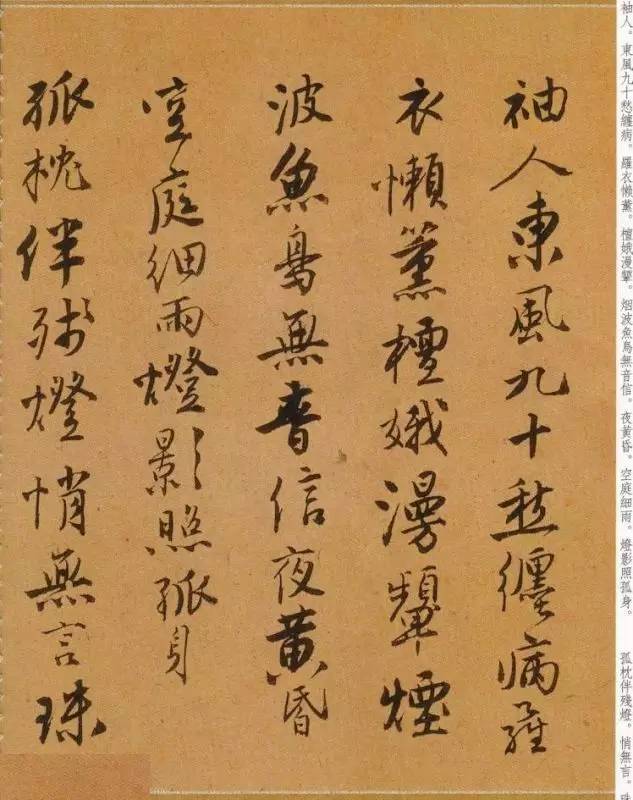 袖人東風九十愁纏病羅
衣懶薰檀娥漫顰煙
波魚鳥無音信夜黄昏
空庭細雨燈影照孤身
孤枕伴殘燈悄無言珠
袖人。東風九十愁纏病。羅衣懶薰。檀娥漫顰。烟波魚鳥無音信。夜黄昏。空庭細雨。燈影照孤身。 孤枕伴殘燈。悄無言。珠